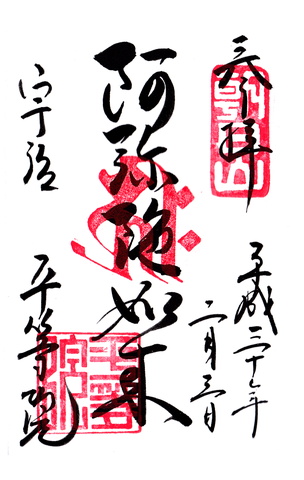 奉拝
平成二十年
二月三日
阿弥陀如来
宇治
平等院